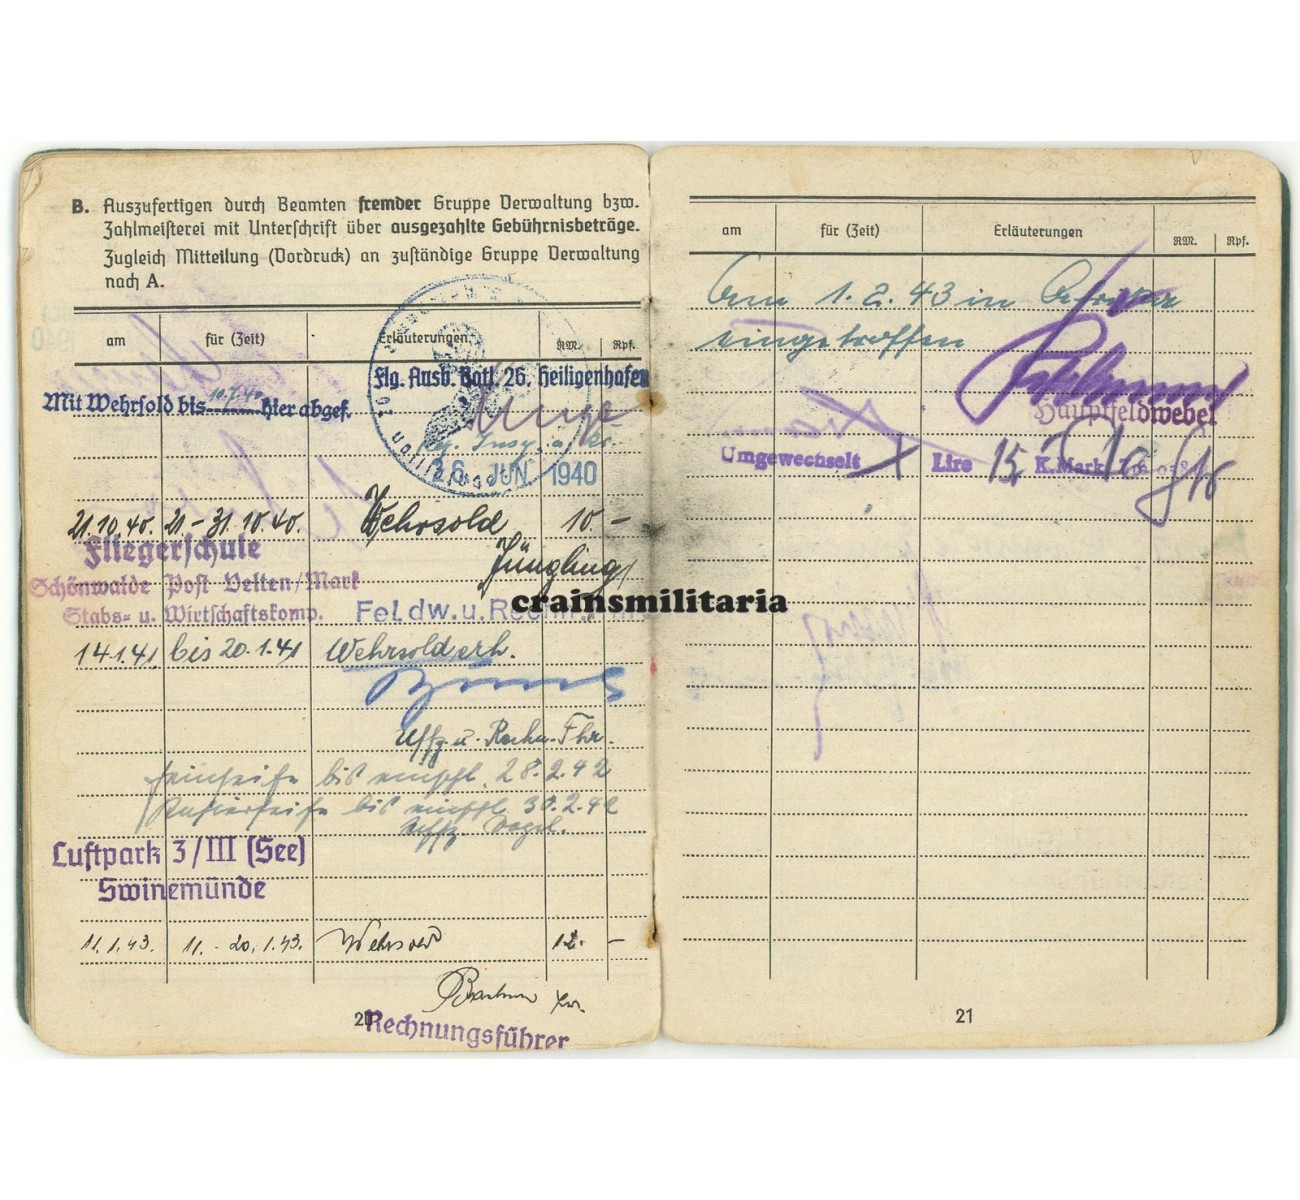 B. Auszufertigen durch Beamten fremder Gruppe Verwaltung bzw.
Zahlmeisterei mit Unterschrift über ausgezahlte Gebührnisbeträge.
Zugleich Mitteilung (Vordruck) an zuständige Gruppe Verwaltung
nach A.
am für (Zeit) Erläuterungen RM. Rpf.
Flg. Ausb. Batl. 26. Heiligenhafen
Mit Wehrsold bis 10.7.40 hier abgef.
26. JUN. 1940
21.10.40. 21-31.10.40. Wehrsold 10.-
Fliegerschule
Jüngling
Schönwalde Post Velten/Mark
Stabs- u. Wirtschaftskomp.
Feldw. u. Rechn.
crainsmilitaria
14.1.41 bis 20.1.41 Wehrsold erh.
Uffz. u. Rechn. Fhr.
Feinseife bis einschl. 28.2.42
Rasierseife bis einschl. 30.2.42
Uffz. Vogel.
Luftpark 3/III (See)
Swinemünde
11.1.43. 11.-20.1.43. Wehrsold 12.-
20
Rechnungsführer
am für (Zeit) Erläuterungen RM. Rpf.
Am 1.2.43 in
eingetroffen
Hauptfeldwebel
Umgewechselt Lire 15 K.Mark
21